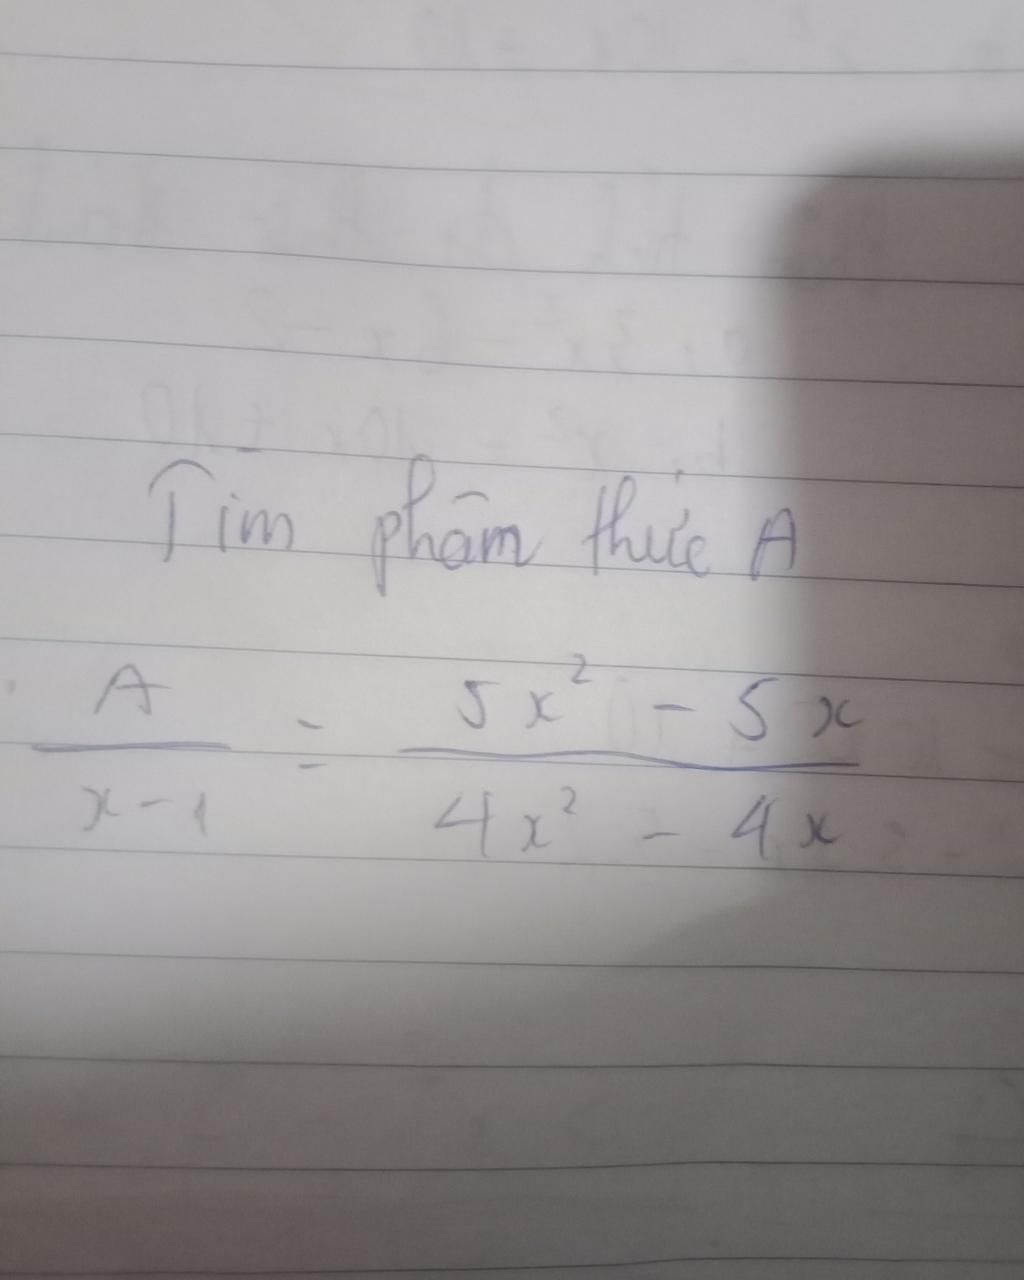 Tìm phâm thức A
A/(x-1) = (5x² - 5x)/(4x² - 4x)